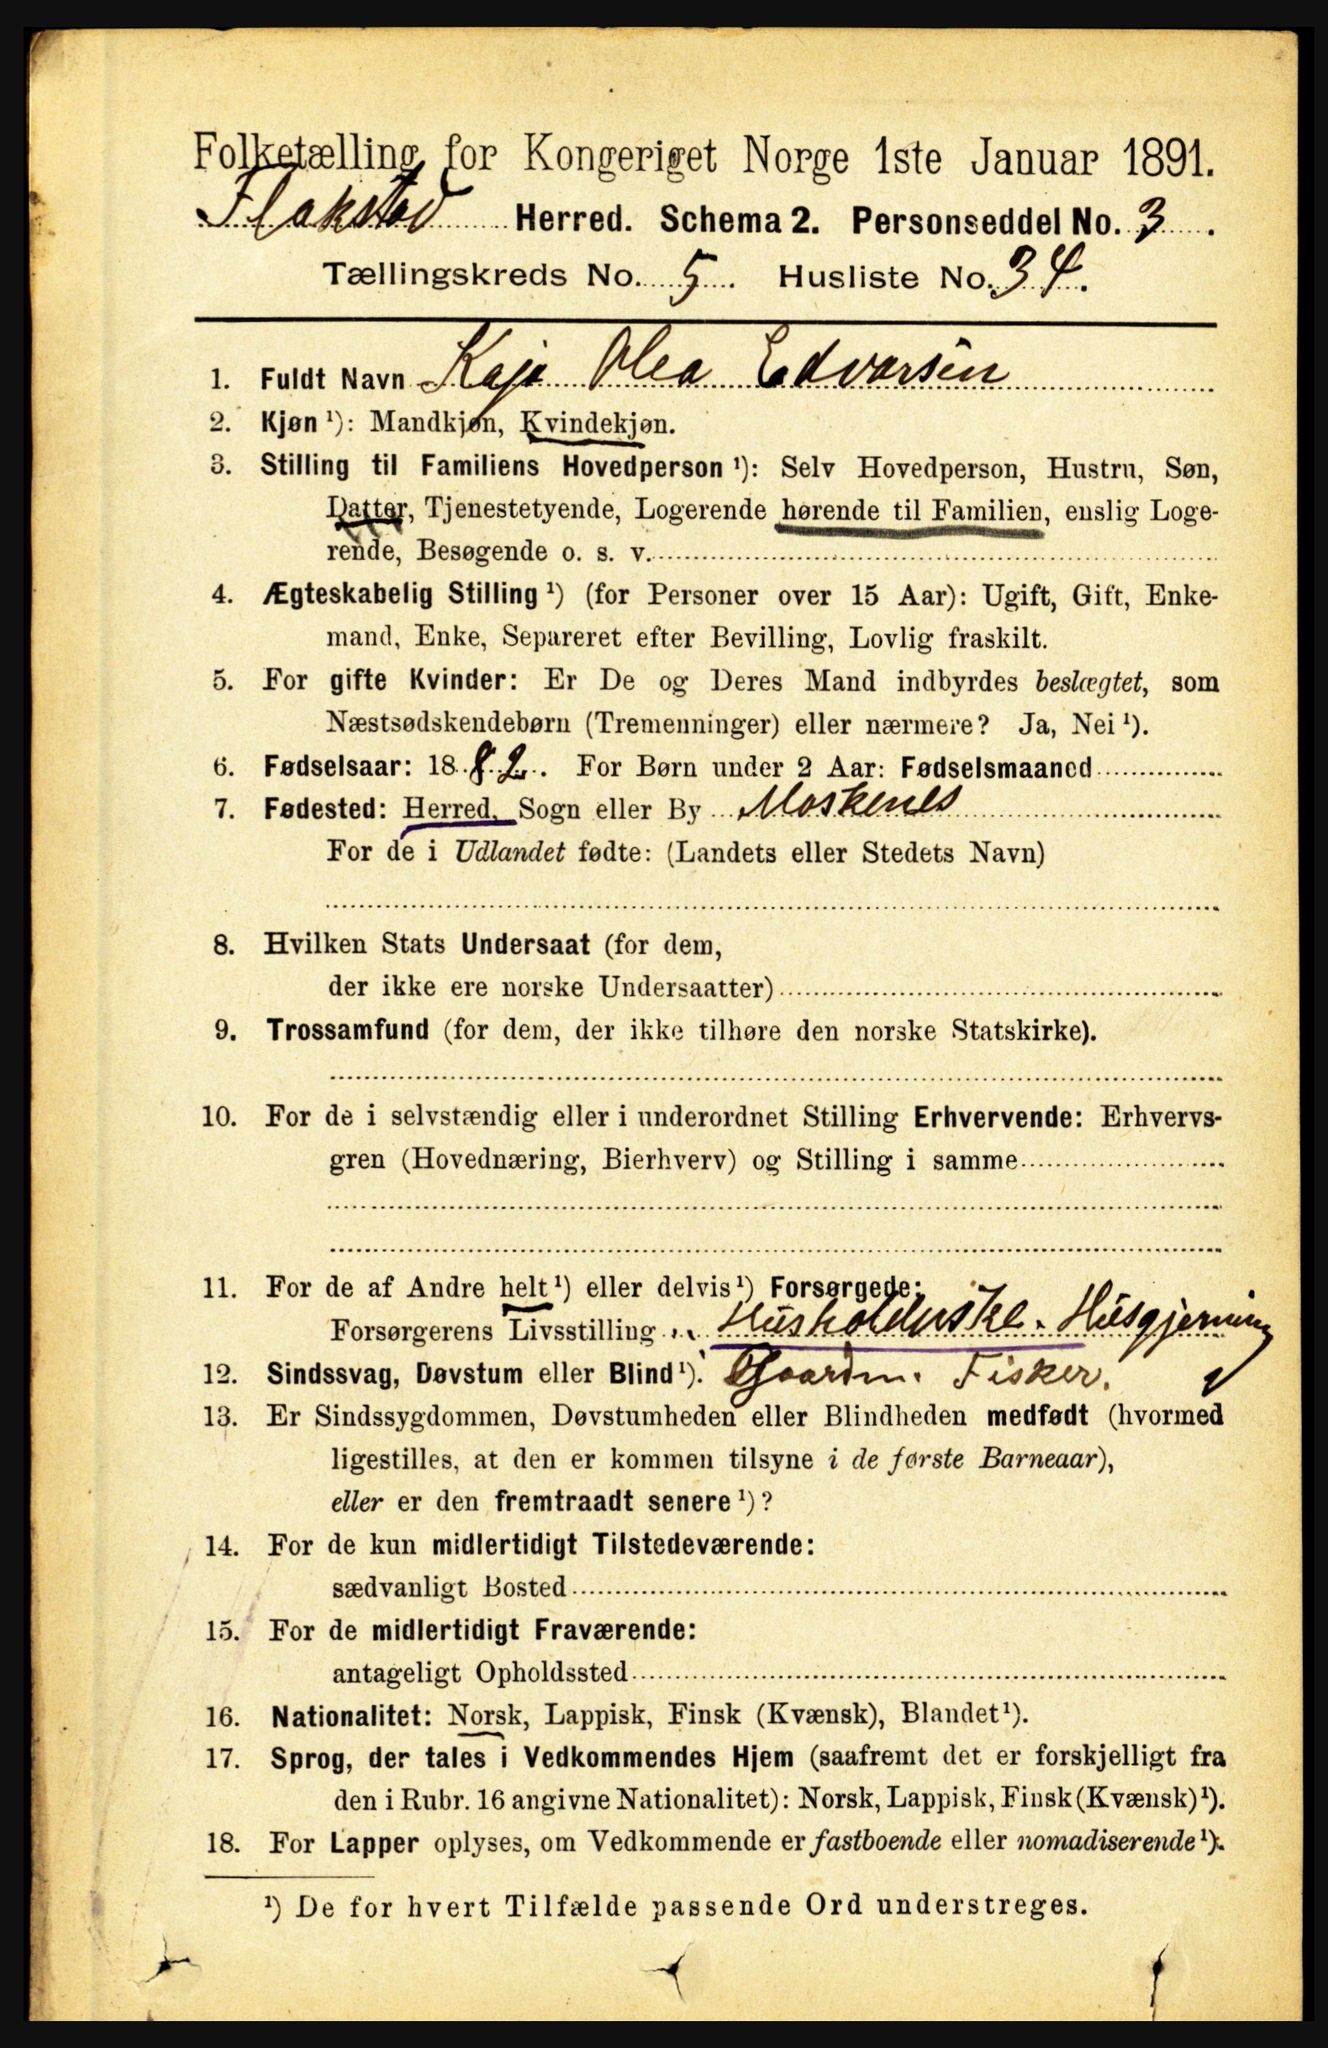 Folketælling for Kongeriget Norge 1ste Januar 1891.
Flakstad Herred. Schema 2. Personseddel No. 3.
Tællingskreds No. 5. Husliste No. 34.
1. Fuldt Navn Kaja Olea Edvarsen
2. Kjøn ¹): Mandkjøn, Kvindekjøn.
3. Stilling til Familiens Hovedperson ¹): Selv Hovedperson, Hustru, Søn,
Datter, Tjenestetyende, Logerende hørende til Familien, enslig Loge-
rende, Besøgende o. s. v.
4. Ægteskabelig Stilling ¹) (for Personer over 15 Aar): Ugift, Gift, Enke-
mand, Enke, Separeret efter Bevilling, Lovlig fraskilt.
5. For gifte Kvinder: Er De og Deres Mand indbyrdes beslægtet, som
Næstsødskendebørn (Tremenninger) eller nærmere? Ja, Nei ¹).
6. Fødselsaar: 1882. For Børn under 2 Aar: Fødselsmaaned
7. Fødested: Herred, Sogn eller By Moskenes
For de i Udlandet fødte: (Landets eller Stedets Navn)
8. Hvilken Stats Undersaat (for dem,
der ikke ere norske Undersaatter)
9. Trossamfund (for dem, der ikke tilhøre den norske Statskirke).
10. For de i selvstændig eller i underordnet Stilling Erhvervende: Erhvervs-
gren (Hovednæring, Bierhverv) og Stilling i samme
11. For de af Andre helt ¹) eller delvis ¹) Forsørgede:
Forsørgerens Livsstilling Husholderske. Husgjerning
12. Sindssvag, Døvstum eller Blind ¹). Gaardm. Fisker.
13. Er Sindssygdommen, Døvstumheden eller Blindheden medfødt (hvormed
ligestilles, at den er kommen tilsyne i de første Barneaar),
eller er den fremtraadt senere ¹)?
14. For de kun midlertidigt Tilstedeværende:
sædvanligt Bosted
15. For de midlertidigt Fraværende:
antageligt Opholdssted
16. Nationalitet: Norsk, Lappisk, Finsk (Kvænsk), Blandet ¹).
17. Sprog, der tales i Vedkommendes Hjem (saafremt det er forskjelligt fra
den i Rubr. 16 angivne Nationalitet): Norsk, Lappisk, Finsk (Kvænsk) ¹).
18. For Lapper oplyses, om Vedkommende er fastboende eller nomadiserende ¹).
¹) De for hvert Tilfælde passende Ord understreges.